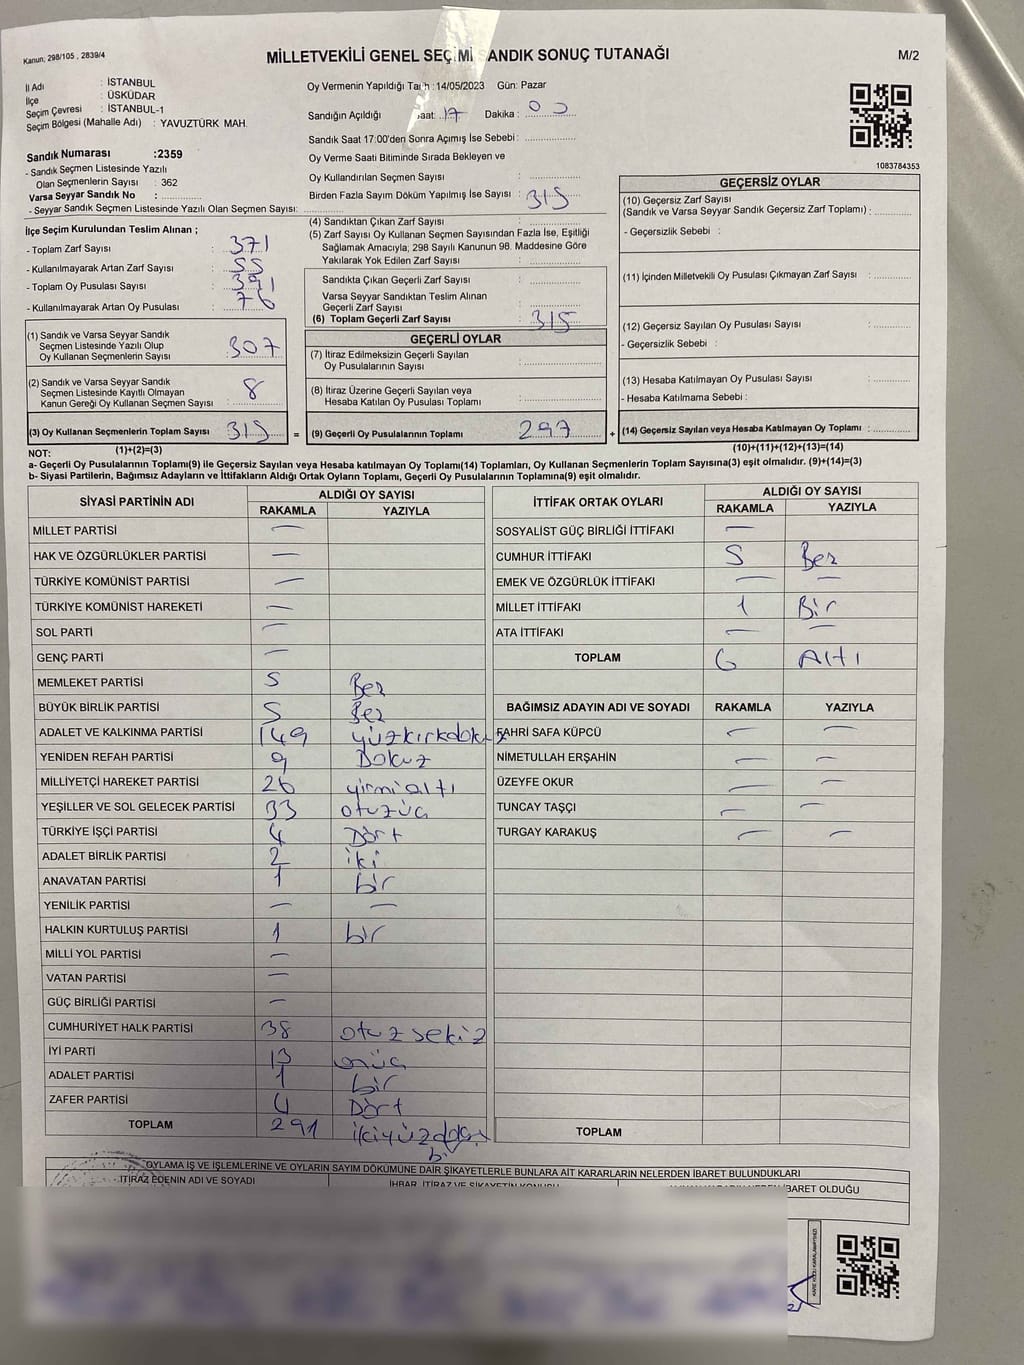 Kanun; 298/105 , 2839/4
MİLLETVEKİLİ GENEL SEÇİMİ SANDIK SONUÇ TUTANAĞI
M/2
İl Adı : İSTANBUL
İlçe : ÜSKÜDAR
Seçim Çevresi : İSTANBUL-1
Seçim Bölgesi (Mahalle Adı) : YAVUZTÜRK MAH.
Sandık Numarası :2359
- Sandık Seçmen Listesinde Yazılı
Olan Seçmenlerin Sayısı : 362
Varsa Seyyar Sandık No :
- Seyyar Sandık Seçmen Listesinde Yazılı Olan Seçmen Sayısı:
Oy Vermenin Yapıldığı Tarih :14/05/2023 Gün: Pazar
Sandığın Açıldığı Saat: 17 Dakika : 00
Sandık Saat 17:00'den Sonra Açımış İse Sebebi :
Oy Verme Saati Bitiminde Sırada Bekleyen ve
Oy Kullandırılan Seçmen Sayısı :
Birden Fazla Sayım Döküm Yapılmış İse Sayısı : 315
1083784353
İlçe Seçim Kurulundan Teslim Alınan ;
- Toplam Zarf Sayısı : 371
- Kullanılmayarak Artan Zarf Sayısı : 55
- Toplam Oy Pusulası Sayısı : 391
- Kullanılmayarak Artan Oy Pusulası : 76
(1) Sandık ve Varsa Seyyar Sandık
Seçmen Listesinde Yazılı Olup
Oy Kullanan Seçmenlerin Sayısı : 307
(2) Sandık ve Varsa Seyyar Sandık
Seçmen Listesinde Kayıtlı Olmayan
Kanun Gereği Oy Kullanan Seçmen Sayısı : 8
(3) Oy Kullanan Seçmenlerin Toplam Sayısı : 315
(1)+(2)=(3)
(4) Sandıktan Çıkan Zarf Sayısı :
(5) Zarf Sayısı Oy Kullanan Seçmen Sayısından Fazla İse, Eşitliği
Sağlamak Amacıyla, 298 Sayılı Kanunun 98. Maddesine Göre
Yakılarak Yok Edilen Zarf Sayısı :
Sandıkta Çıkan Geçerli Zarf Sayısı :
Varsa Seyyar Sandıktan Teslim Alınan
Geçerli Zarf Sayısı :
(6) Toplam Geçerli Zarf Sayısı : 315
GEÇERLİ OYLAR
(7) İtiraz Edilmeksizin Geçerli Sayılan
Oy Pusulalarının Sayısı :
(8) İtiraz Üzerine Geçerli Sayılan veya
Hesaba Katılan Oy Pusulası Toplamı :
= (9) Geçerli Oy Pusulalarının Toplamı : 297 +
GEÇERSİZ OYLAR
(10) Geçersiz Zarf Sayısı
(Sandık ve Varsa Seyyar Sandık Geçersiz Zarf Toplamı) :
- Geçersizlik Sebebi :
(11) İçinden Milletvekili Oy Pusulası Çıkmayan Zarf Sayısı :
(12) Geçersiz Sayılan Oy Pusulası Sayısı :
- Geçersizlik Sebebi :
(13) Hesaba Katılmayan Oy Pusulası Sayısı :
- Hesaba Katılmama Sebebi :
(14) Geçersiz Sayılan veya Hesaba Katılmayan Oy Toplamı :
(10)+(11)+(12)+(13)=(14)
NOT:
a- Geçerli Oy Pusulalarının Toplamı(9) ile Geçersiz Sayılan veya Hesaba katılmayan Oy Toplamı(14) Toplamları, Oy Kullanan Seçmenlerin Toplam Sayısına(3) eşit olmalıdır. (9)+(14)=(3)
b- Siyasi Partilerin, Bağımsız Adayların ve İttifakların Aldığı Ortak Oyların Toplamı, Geçerli Oy Pusulalarının Toplamına(9) eşit olmalıdır.
SİYASİ PARTİNİN ADI ALDIĞI OY SAYISI
RAKAMLA YAZIYLA
MİLLET PARTİSİ —
HAK VE ÖZGÜRLÜKLER PARTİSİ —
TÜRKİYE KOMÜNİST PARTİSİ —
TÜRKİYE KOMÜNİST HAREKETİ —
SOL PARTİ —
GENÇ PARTİ —
MEMLEKET PARTİSİ 5 Beş
BÜYÜK BİRLİK PARTİSİ 5 Beş
ADALET VE KALKINMA PARTİSİ 149 yüzkırkdokuz
YENİDEN REFAH PARTİSİ 9 Dokuz
MİLLİYETÇİ HAREKET PARTİSİ 26 yirmialtı
YEŞİLLER VE SOL GELECEK PARTİSİ 33 otuzüç
TÜRKİYE İŞÇİ PARTİSİ 4 Dört
ADALET BİRLİK PARTİSİ 2 iki
ANAVATAN PARTİSİ 1 bir
YENİLİK PARTİSİ — —
HALKIN KURTULUŞ PARTİSİ 1 bir
MİLLİ YOL PARTİSİ —
VATAN PARTİSİ —
GÜÇ BİRLİĞİ PARTİSİ —
CUMHURİYET HALK PARTİSİ 38 otuz sekiz
İYİ PARTİ 13 onüç
ADALET PARTİSİ 1 bir
ZAFER PARTİSİ 4 Dört
TOPLAM 291
İTTİFAK ORTAK OYLARI ALDIĞI OY SAYISI
RAKAMLA YAZIYLA
SOSYALİST GÜÇ BİRLİĞİ İTTİFAKI —
CUMHUR İTTİFAKI 5 Beş
EMEK VE ÖZGÜRLÜK İTTİFAKI — —
MİLLET İTTİFAKI 1 Bir
ATA İTTİFAKI — —
TOPLAM 6 Altı
BAĞIMSIZ ADAYIN ADI VE SOYADI RAKAMLA YAZIYLA
FAHRİ SAFA KÜPCÜ — —
NİMETULLAH ERŞAHİN — —
ÜZEYFE OKUR — —
TUNCAY TAŞÇI — —
TURGAY KARAKUŞ — —
TOPLAM
OYLAMA İŞ VE İŞLEMLERİNE VE OYLARIN SAYIM DÖKÜMÜNE DAİR ŞİKAYETLERLE BUNLARA AİT KARARLARIN NELERDEN İBARET BULUNDUKLARI
İTİRAZ EDENİN ADI VE SOYADI İHBAR, İTİRAZ VE ŞİKAYETİN KONUSU İBARET OLDUĞU